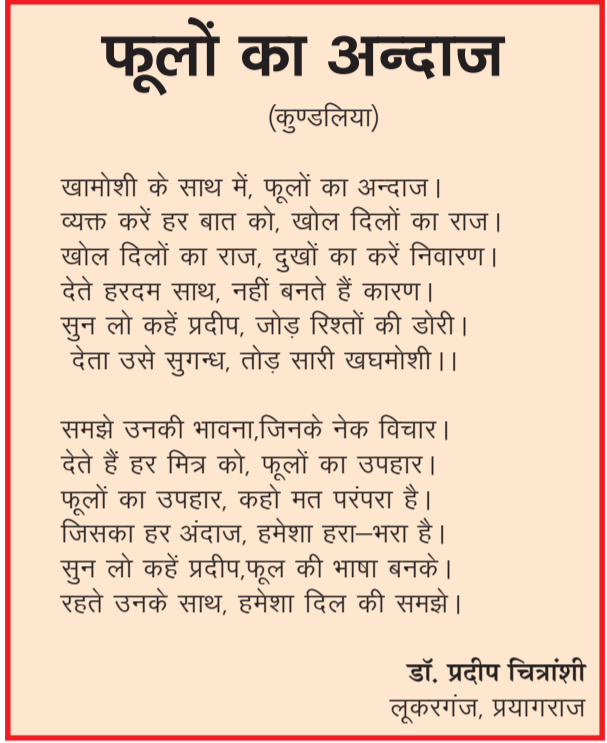 फूलों का अन्दाज
(कुण्डलिया)
खामोशी के साथ में, फूलों का अन्दाज।
व्यक्त करें हर बात को, खोल दिलों का राज।
खोल दिलों का राज, दुखों का करें निवारण।
देते हरदम साथ, नहीं बनते हैं कारण।
सुन लो कहें प्रदीप, जोड़ रिश्तों की डोरी।
देता उसे सुगन्ध, तोड़ सारी खघमोशी।।
समझे उनकी भावना,जिनके नेक विचार।
देते हैं हर मित्र को, फूलों का उपहार।
फूलों का उपहार, कहो मत परंपरा है।
जिसका हर अंदाज, हमेशा हरा–भरा है।
सुन लो कहें प्रदीप,फूल की भाषा बनके।
रहते उनके साथ, हमेशा दिल की समझे।
डॉ. प्रदीप चित्रांशी
लूकरगंज, प्रयागराज